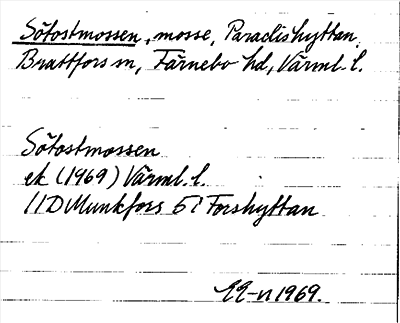 Sötostmossen, mosse, Paradishyttan,
Brattfors sn, Färnebo hd, Värml. l.
Sötostmossen
ek (1969) Värml. l.
11D Munkfors 5i Forshyttan
1969.